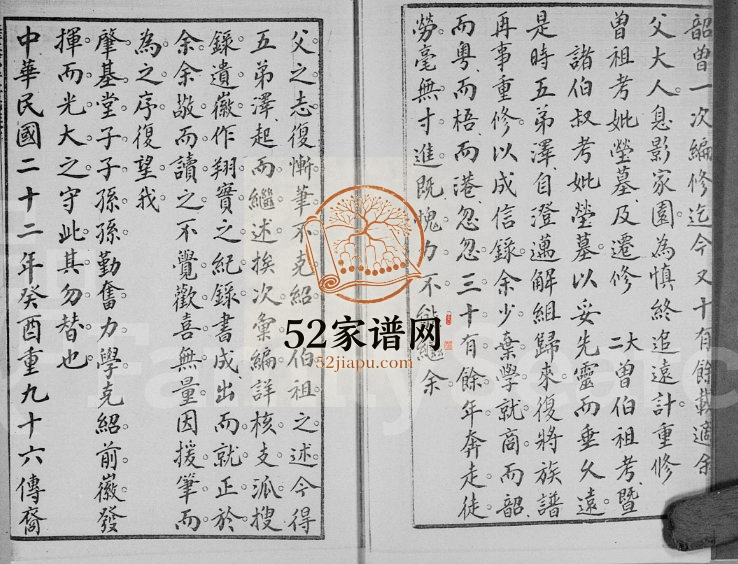 韶曾一次編修迄今又十有餘載適余
父大人息影家園為慎終追遠計重修
曾祖考妣塋墓及遷修 大二曾伯祖考暨
諸伯叔考妣塋墓以妥先靈而垂久遠
是時五弟澤自澄邁解組歸來復將族譜
再事重修以成信錄余少棄學就商而韶
而粤而梧而港忽忽三十有餘年奔走徒
勞毫無寸進既愧力不能繼余
父之志復慚筆不克紹 伯祖之述今得
五弟澤起而繼述挨次彙編詳核支派搜
錄遺徽作翔實之紀錄書成出而就正於
余余敬而讀之不覺歡喜無量因援筆而
為之序復望我
肇基堂子子孫孫勤奮力學克紹前徽發
揮而光大之守此其勿替也
中華民國二十二年癸酉重九十六傳裔
52家谱网
52jiapu.com